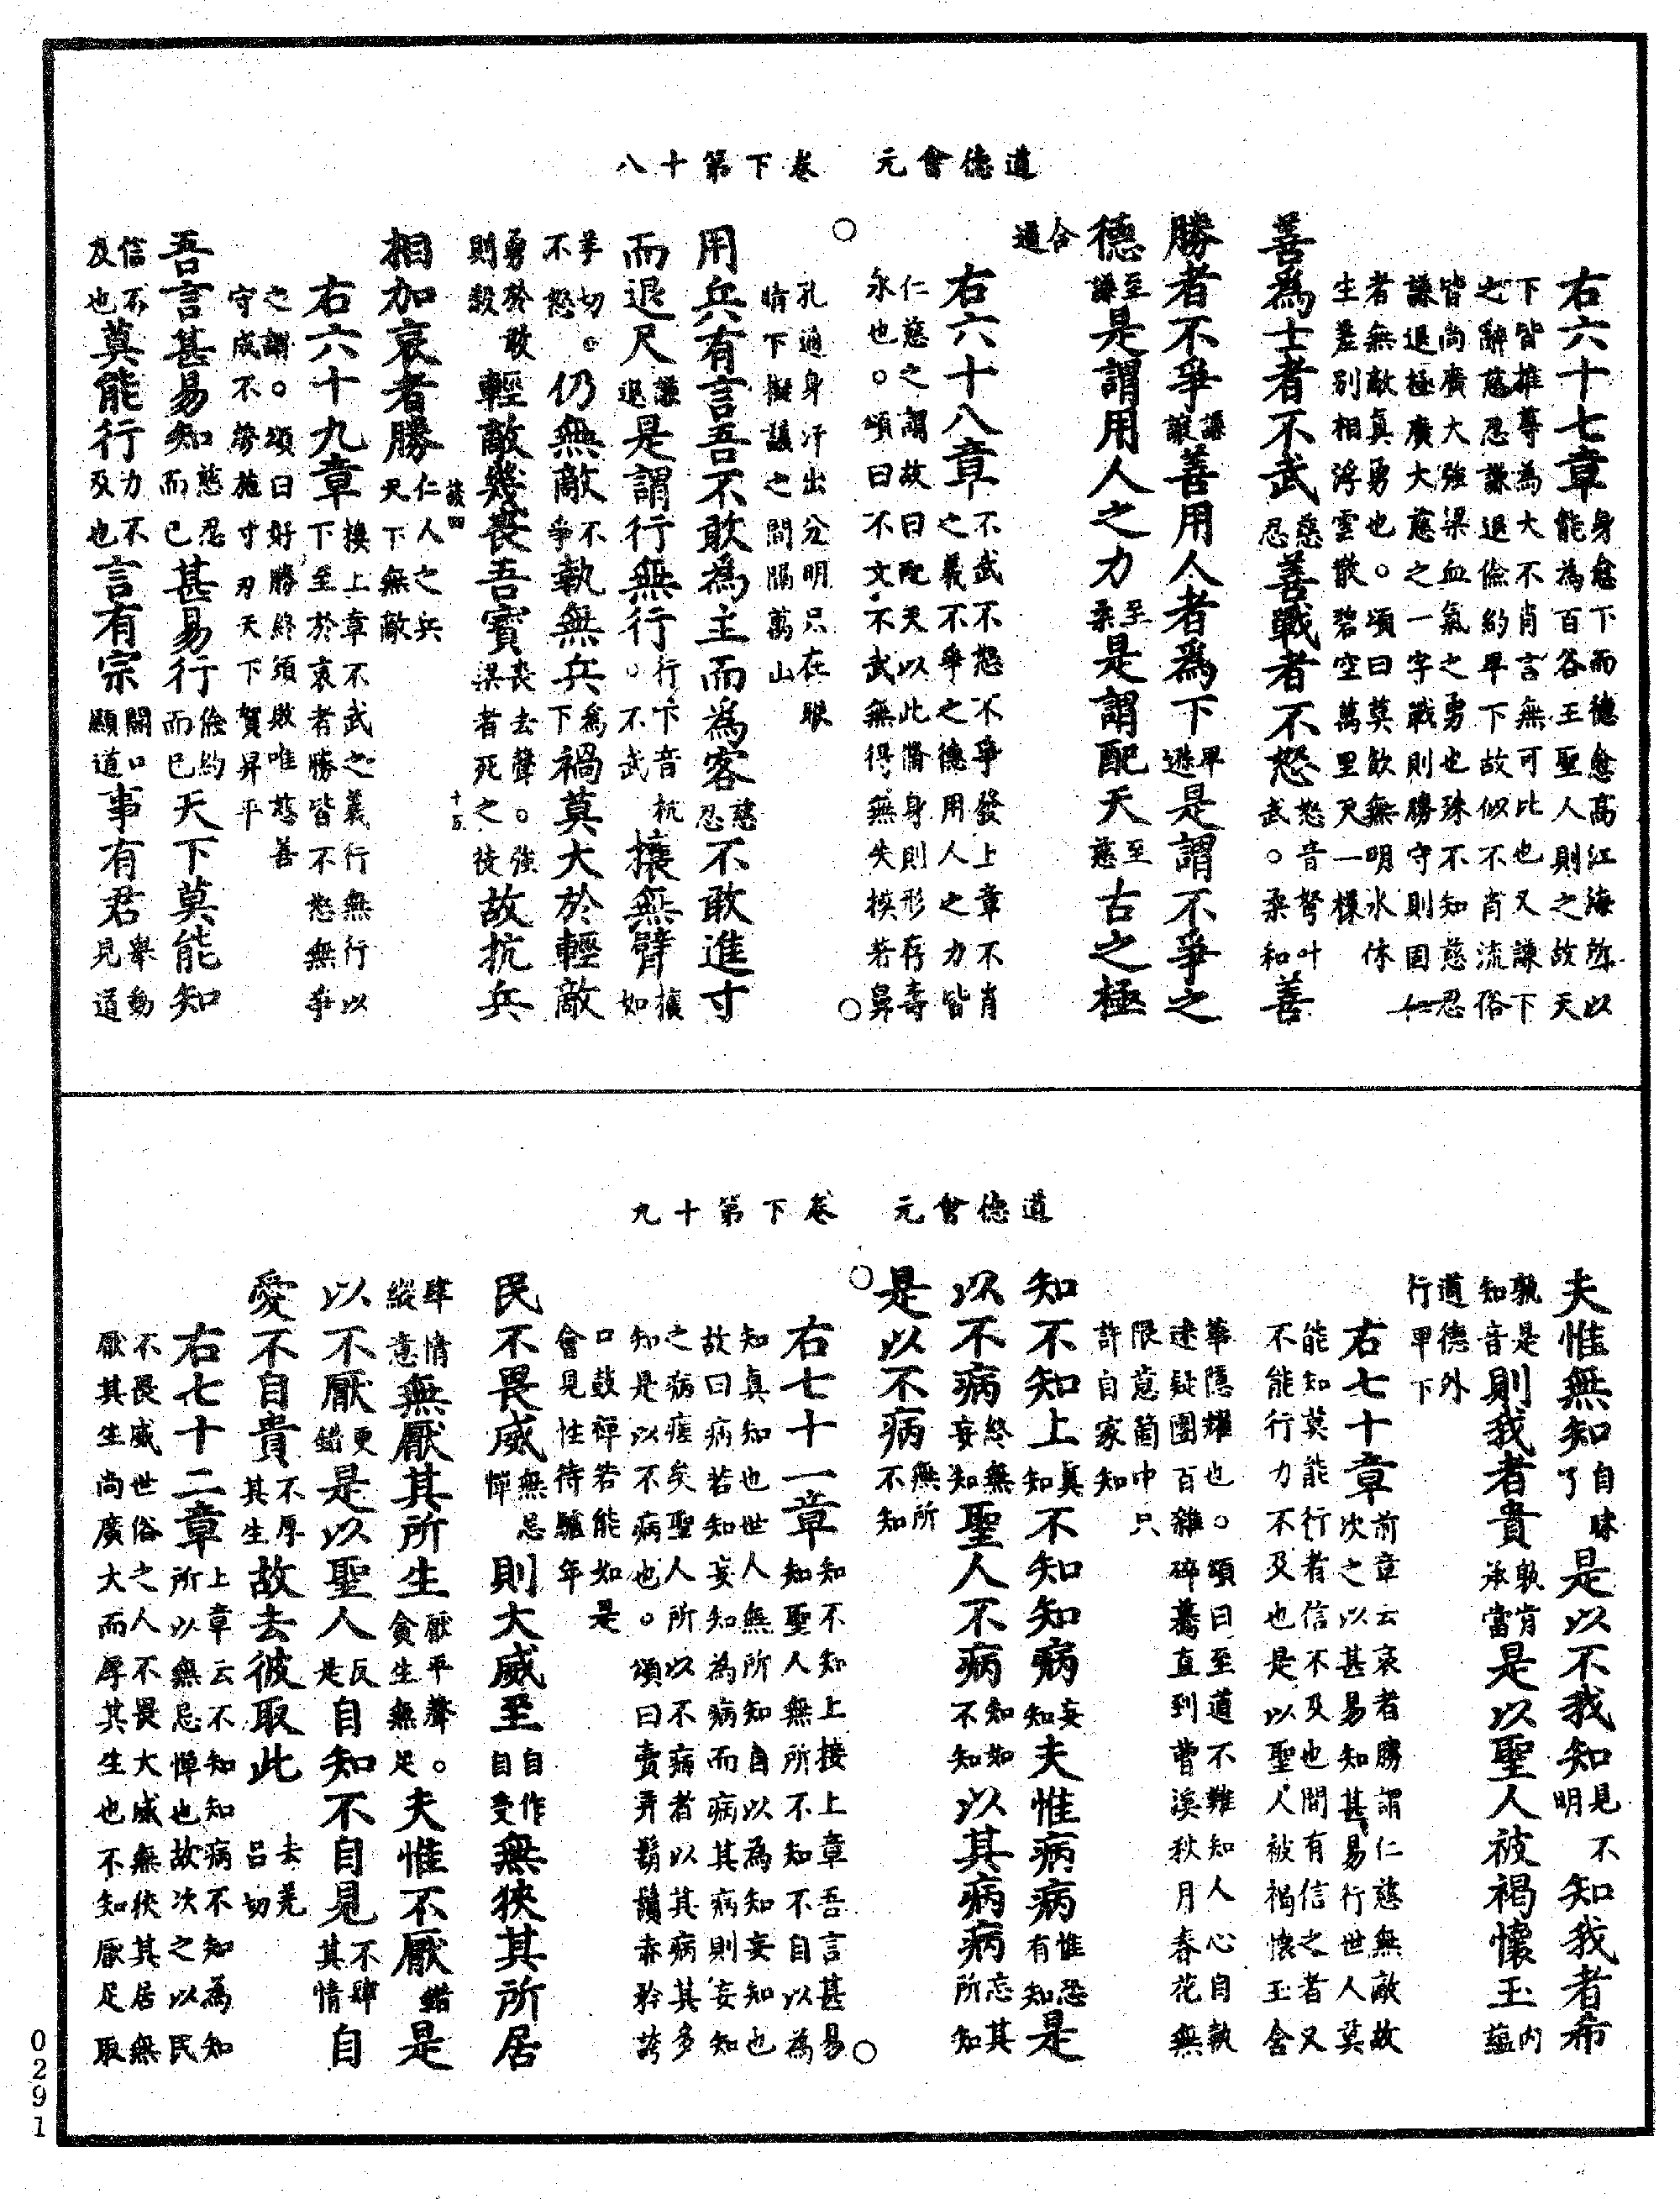 道德會元　卷下第十八
右六十七章身愈下而德愈高江海所以能為百谷王聖人則之故天
下皆推尊為大不肖言無可比也又謙下之辭慈忍謙退儉約卑下故似不肖流俗
皆尚廣大強梁血氣之勇也殊不知慈忍謙退極廣大慈之一字戰則勝守則固仁
者無敵真勇也。頌曰莫飲無明水休生差別相浮雲散碧空萬里天一樣
善為士者不武慈忍善戰者不怒怒音弩叶武。柔和善
勝者不爭謙讓善用人者為下卑遜是謂不爭之
德至謙是謂用人之力至柔是謂配天至慈古之極
合道
右六十八章不武不怒不爭發上章不肖之義不爭之德用人之力皆
仁慈之謂故曰配天以此修身則形存壽永也。頌曰不文不武無得無失挨若鼻
孔通身汗出分明只在眼睛下擬議之間隔萬山
用兵有言吾不敢為主而為客慈忍不敢進寸
而退尺謙退是謂行無行行下音杭。不武攘無臂攘如
羊切。不怒仍無敵不爭執無兵為下禍莫大於輕敵
勇於敢則殺輕敵幾喪吾寶喪去聲。強梁者死之徒故抗兵
相加哀者勝仁人之兵天下無敵
談四
十五
右六十九章接上章不武之義行無行以下至於哀者勝皆不怒無爭
之謂。頌曰好勝終須敗唯慈善守成不勞施寸刃天下賀昇平
吾言甚易知慈忍而已甚易行儉約而已天下莫能知
信不及也莫能行力不及也言有宗開口顯道事有君舉動見道
道德會元　卷下第十九
夫惟無知自昧了是以不我知見不明知我者希
孰是知音則我者貴孰肯承當是以聖人被褐懷玉內蘊
道德外行卑下
右七十章前章云哀者勝謂仁慈無敵故次之以甚易知甚易行世人莫
能知莫能行者信不及也間有信之者又不能行力不及也是以聖人被褐懷玉含
華隱耀也。頌曰至道不難知人心自執迷疑團百雜碎驀直到曹溪秋月春花無
限意箇中只許自家知
知不知上真知不知知病妄知夫惟病病惟恐有知是
以不病終無妄知聖人不病知如不知以其病病忘其所知
是以不病無所不知
右七十一章知不知上接上章吾言甚易知聖人無所不知不自以為
知真知也世人無所知自以為知妄知也故曰病若知妄知為病而病其病則妄知
之病瘥矣聖人所以不病者以其病其多知是以不病也。頌曰賣弄鬍鬚赤矜誇
口鼓禪若能如是會見性待驢年
民不畏威無忌憚則大威至自作自受無狹其所居
肆情縱意無厭其所生厭平聲。貪生無足夫惟不厭錯是
以不厭更錯是以聖人反是自知不自見不肆其情自
愛不自貴不厚其生故去彼取此去羌呂切
右七十二章上章云不知知病不知為知所以無忌憚也故次之以民
不畏威世俗之人不畏大威無狹其居無厭其生尚廣大而厚其生也不知厭足取
0291